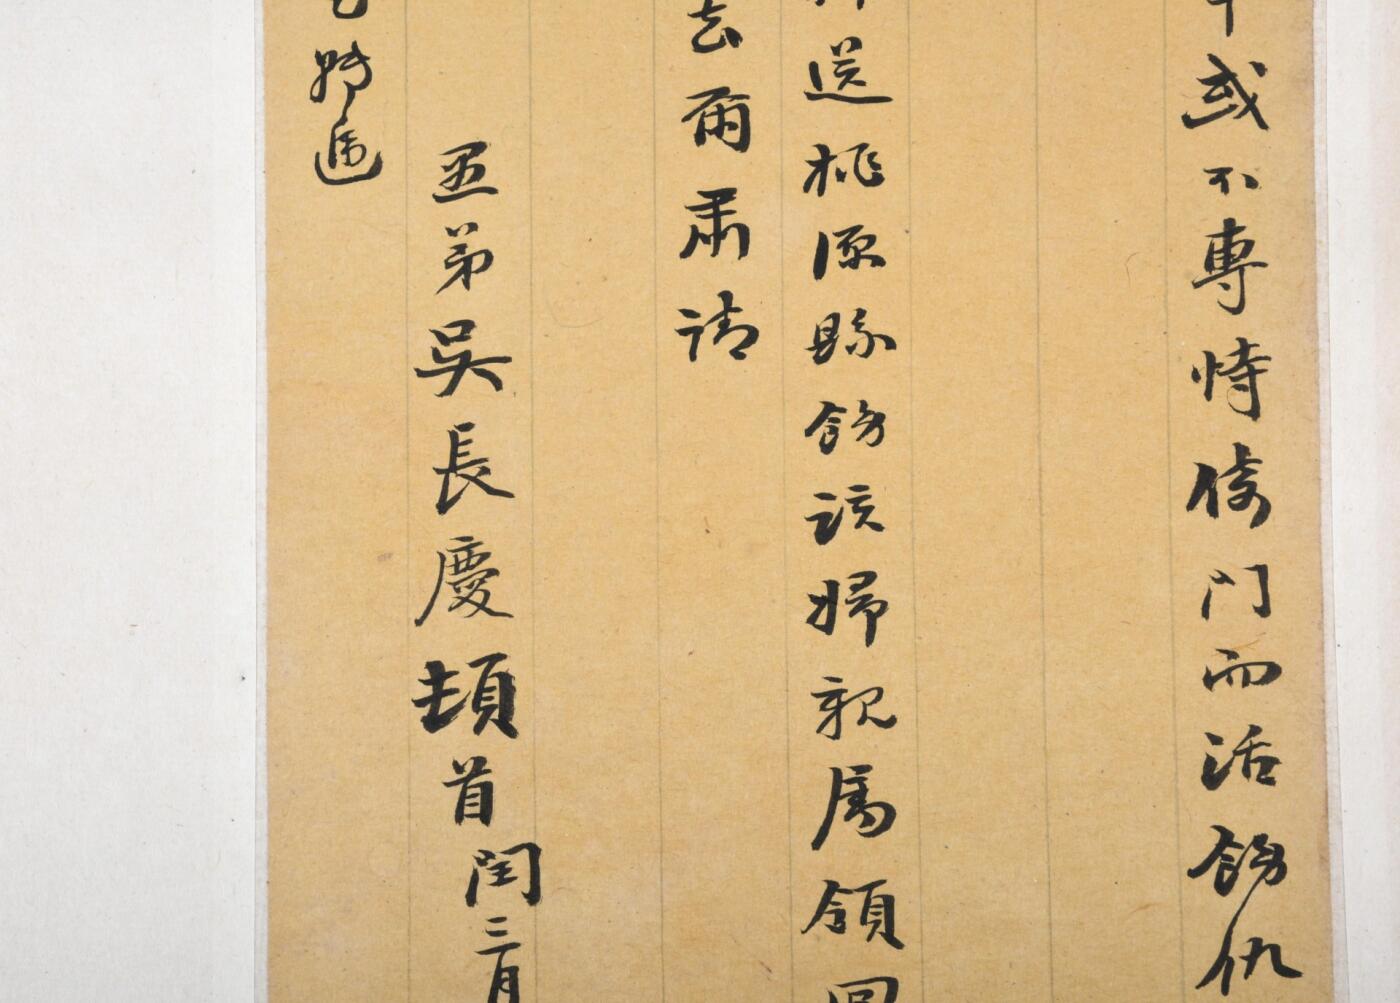 或不專恃倚門而活飭仇
送桃源縣飭該婦親屬領回
去爾肅請
愚弟吳長慶頓首閏三月